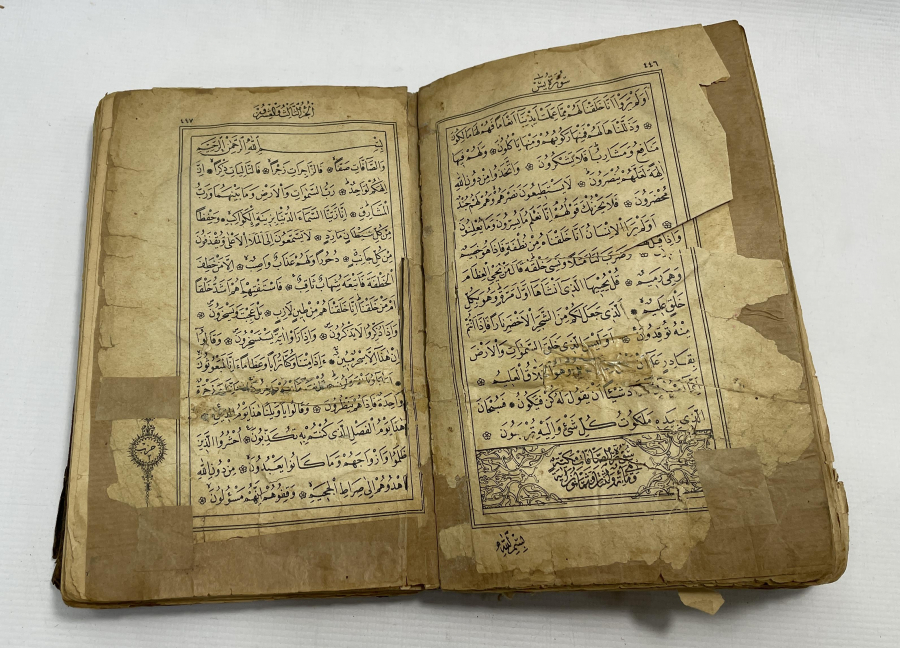 ٤٤٦
سورة يس
اَوَلَمْ يَرَوْا اَنَّا خَلَقْنَا لَهُمْ مِمَّا عَمِلَتْ اَيْدِينَا اَنْعَامًا فَهُمْ لَهَا مَالِكُونَ
وَذَلَّلْنَاهَا لَهُمْ فَمِنْهَا رَكُوبُهُمْ وَمِنْهَا يَأْكُلُونَ ۞ وَلَهُمْ فِيهَا
مَنَافِعُ وَمَشَارِبُ اَفَلَا يَشْكُرُونَ ۞ وَاتَّخَذُوا مِنْ دُونِ اللّٰهِ
اٰلِهَةً لَعَلَّهُمْ يُنْصَرُونَ ۞ لَا يَسْتَطِيعُونَ نَصْرَهُمْ وَهُمْ لَهُمْ جُنْدٌ
مُحْضَرُونَ ۞ فَلَا يَحْزُنْكَ قَوْلُهُمْ اِنَّا نَعْلَمُ مَا يُسِرُّونَ وَمَا يُعْلِنُونَ
اَوَلَمْ يَرَ الْاِنْسَانُ اَنَّا خَلَقْنَاهُ مِنْ نُطْفَةٍ فَاِذَا هُوَ خَصِيمٌ
وَضَرَبَ لَنَا مَثَلًا وَنَسِيَ خَلْقَهُ قَالَ مَنْ يُحْيِي الْعِظَامَ
وَهِيَ رَمِيمٌ ۞ قُلْ يُحْيِيهَا الَّذِي اَنْشَاَهَا اَوَّلَ مَرَّةٍ وَهُوَ بِكُلِّ
خَلْقٍ عَلِيمٌ ۞ اَلَّذِي جَعَلَ لَكُمْ مِنَ الشَّجَرِ الْاَخْضَرِ نَارًا فَاِذَا اَنْتُمْ
مِنْهُ تُوقِدُونَ ۞ اَوَلَيْسَ الَّذِي خَلَقَ السَّمٰوَاتِ وَالْاَرْضَ
بِقَادِرٍ عَلٰى وَهُوَ الْعَلِيمُ ۞
شَيْئًا اَنْ يَقُولَ لَهُ كُنْ فَيَكُونُ ۞ فَسُبْحَانَ
الَّذِي بِيَدِهِ مَلَكُوتُ كُلِّ شَيْءٍ وَاِلَيْهِ تُرْجَعُونَ ۞
سورة الصافات مكية
بسم الله
الجزء الثالث والعشرون
٤٤٧
بِسْمِ اللّٰهِ الرَّحْمٰنِ الرَّحِيمِ
وَالصَّافَّاتِ صَفًّا ۞ فَالزَّاجِرَاتِ زَجْرًا ۞ فَالتَّالِيَاتِ ذِكْرًا ۞ اِنَّ
اِلٰهَكُمْ لَوَاحِدٌ ۞ رَبُّ السَّمٰوَاتِ وَالْاَرْضِ وَمَا بَيْنَهُمَا وَرَبُّ
الْمَشَارِقِ ۞ اِنَّا زَيَّنَّا السَّمَاءَ الدُّنْيَا بِزِينَةٍ الْكَوَاكِبِ ۞ وَحِفْظًا
مِنْ كُلِّ شَيْطَانٍ مَارِدٍ ۞ لَا يَسَّمَّعُونَ اِلَى الْمَلَاِ الْاَعْلٰى وَيُقْذَفُونَ
مِنْ كُلِّ جَانِبٍ ۞ دُحُورًا وَلَهُمْ عَذَابٌ وَاصِبٌ ۞ اِلَّا مَنْ خَطِفَ
الْخَطْفَةَ فَاَتْبَعَهُ شِهَابٌ ثَاقِبٌ ۞ فَاسْتَفْتِهِمْ اَهُمْ اَشَدُّ خَلْقًا
اَمْ مَنْ خَلَقْنَا اِنَّا خَلَقْنَاهُمْ مِنْ طِينٍ لَازِبٍ ۞ بَلْ عَجِبْتَ وَيَسْخَرُونَ ۞
وَاِذَا ذُكِّرُوا لَا يَذْكُرُونَ ۞ وَاِذَا رَاَوْا اٰيَةً يَسْتَسْخِرُونَ ۞ وَقَالُوا
اِنْ هٰذَا اِلَّا سِحْرٌ مُبِينٌ ۞ ءَاِذَا مِتْنَا وَكُنَّا تُرَابًا وَعِظَامًا ءَاِنَّا لَمَبْعُوثُونَ
اَوَ اٰبَاؤُنَا الْاَوَّلُونَ ۞ قُلْ نَعَمْ وَاَنْتُمْ دَاخِرُونَ ۞ فَاِنَّمَا هِيَ زَجْرَةٌ
وَاحِدَةٌ فَاِذَا هُمْ يَنْظُرُونَ ۞ وَقَالُوا يَا وَيْلَنَا هٰذَا يَوْمُ الدِّينِ
هٰذَا يَوْمُ الْفَصْلِ الَّذِي كُنْتُمْ بِهِ تُكَذِّبُونَ ۞ اُحْشُرُوا الَّذِينَ
ظَلَمُوا وَاَزْوَاجَهُمْ وَمَا كَانُوا يَعْبُدُونَ ۞ مِنْ دُونِ اللّٰهِ
فَاهْدُوهُمْ اِلٰى صِرَاطِ الْجَحِيمِ ۞ وَقِفُوهُمْ اِنَّهُمْ مَسْؤُلُونَ ۞
حزب